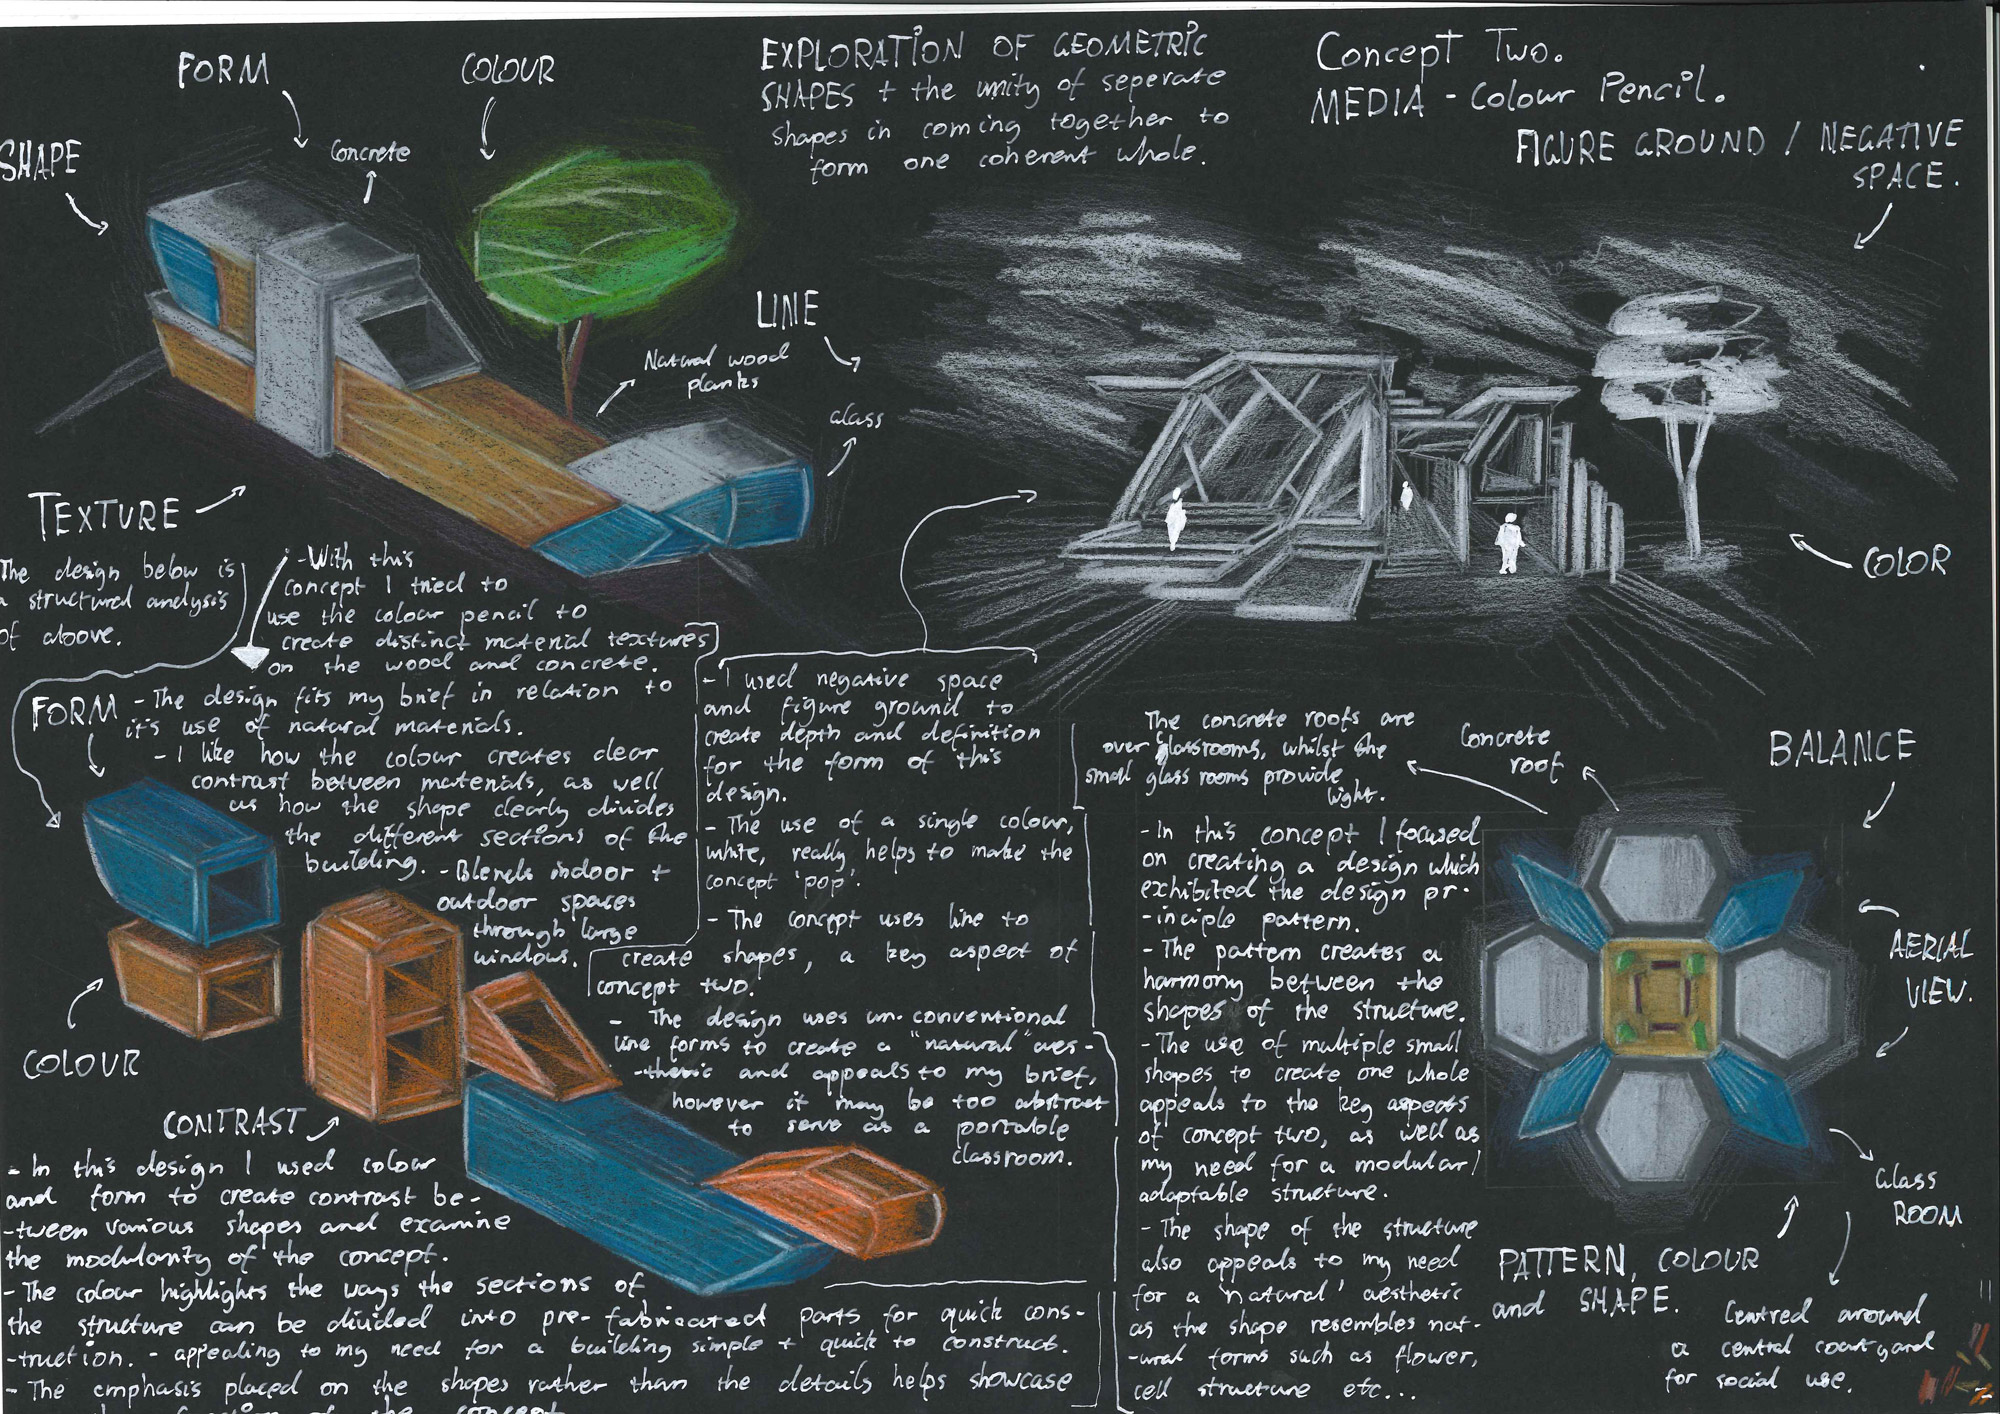 EXPLORATION OF GEOMETRIC
SHAPES + the unity of seperate
shapes in coming together to
form one coherent whole.
Concept Two.
MEDIA - Colour Pencil.
FIGURE GROUND / NEGATIVE
SPACE.
FORM
COLOUR
SHAPE
Concrete
LINE
Natural wood
planks
Glass
TEXTURE
COLOR
The design below is
a structured analysis
of above.
- With this
concept I tried to
use the colour pencil to
create distinct material textures
on the wood and concrete.
FORM
- The design fits my brief in relation to
it's use of natural materials.
- I like how the colour creates clear
contrast between materials, as well
as how the shape clearly divides
the different sections of the
building.
- Blends indoor +
outdoor spaces
through large
windows.
COLOUR
CONTRAST
- In this design I used colour
and form to create contrast be-
-tween various shapes and examine
the modularity of the concept.
- The colour highlights the ways the sections of
the structure can be divided into pre-fabricated parts for quick cons-
-truction. - appealing to my need for a building simple + quick to construct.
- The emphasis placed on the shapes rather than the details helps showcase
of the concept
- I used negative space
and figure ground to
create depth and definition
for the form of this
design.
- The use of a single colour,
white, really helps to make the
concept 'pop'.
- The concept uses line to
create shapes, a key aspect of
concept two.
- The design uses un-conventional
line forms to create a "natural" aes-
-thetic and appeals to my brief,
however it may be too abstract
to serve as a portable
classroom.
The concrete roofs are
over glassrooms, whilst the
small glass rooms provide
light.
Concrete
roof
BALANCE
- In this concept I focused
on creating a design which
exhibited the design pr-
-inciple pattern.
- The pattern creates a
harmony between the
shapes of the structure.
- The use of multiple small
shapes to create one whole
appeals to the key aspects
of concept two, as well as
my need for a modular/
adaptable structure.
- The shape of the structure
also appeals to my need
for a 'natural' aesthetic
as the shape resembles nat-
-ural forms such as flower,
cell structure etc...
AERIAL
VIEW.
Glass
ROOM
PATTERN, COLOUR
and SHAPE.
Centred around
a central courtyard
for social use.